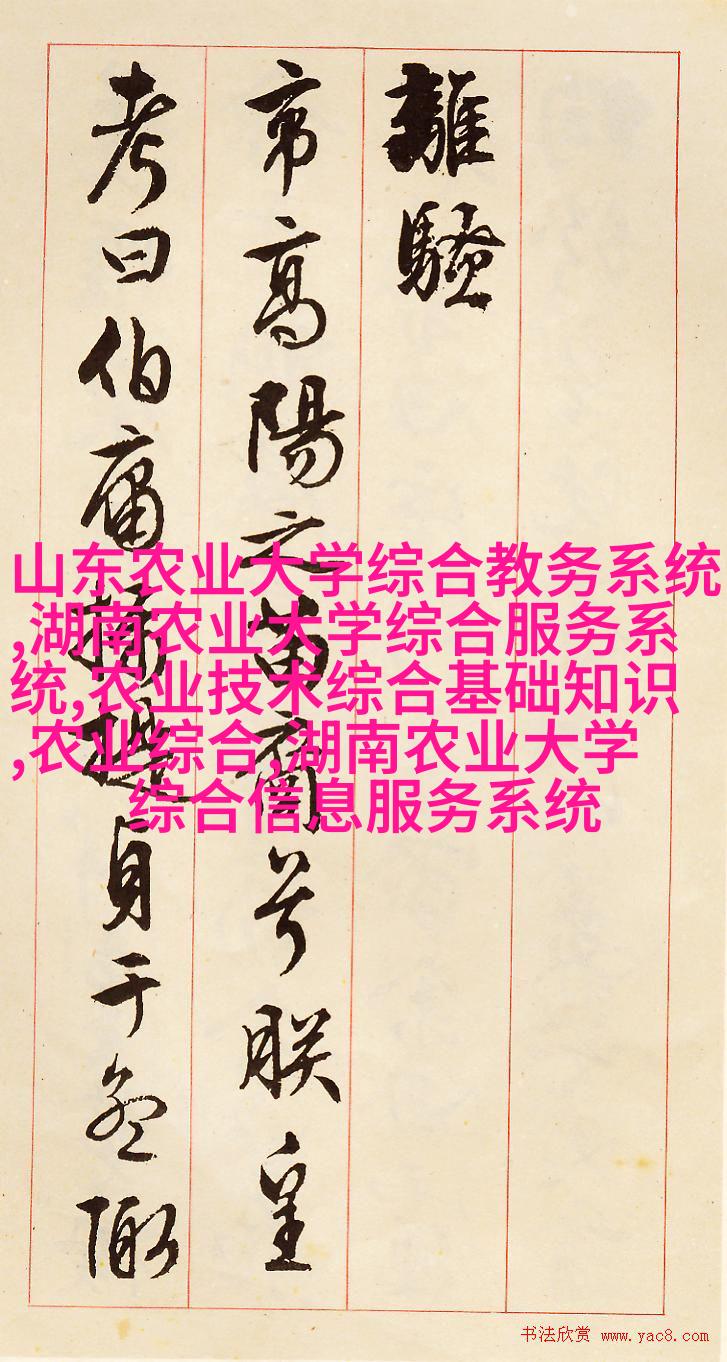 離騷
帝高陽之苗裔兮朕皇
考曰伯庸攝提貞于孟陬
山东农业大学综合教务系统
,湖南农业大学综合服务系
统,农业技术综合基础知识
,农业综合,湖南农业大学
综合信息服务系统
书法欣赏 www.yac8.com